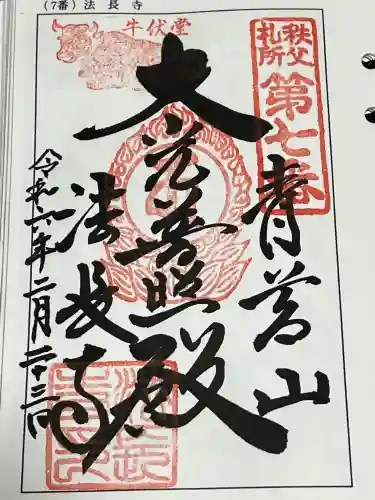 (7番) 法長寺
牛伏堂
秩父札所
第七番
青苔山
大光普照殿
法長寺
令和六年二月二十三日